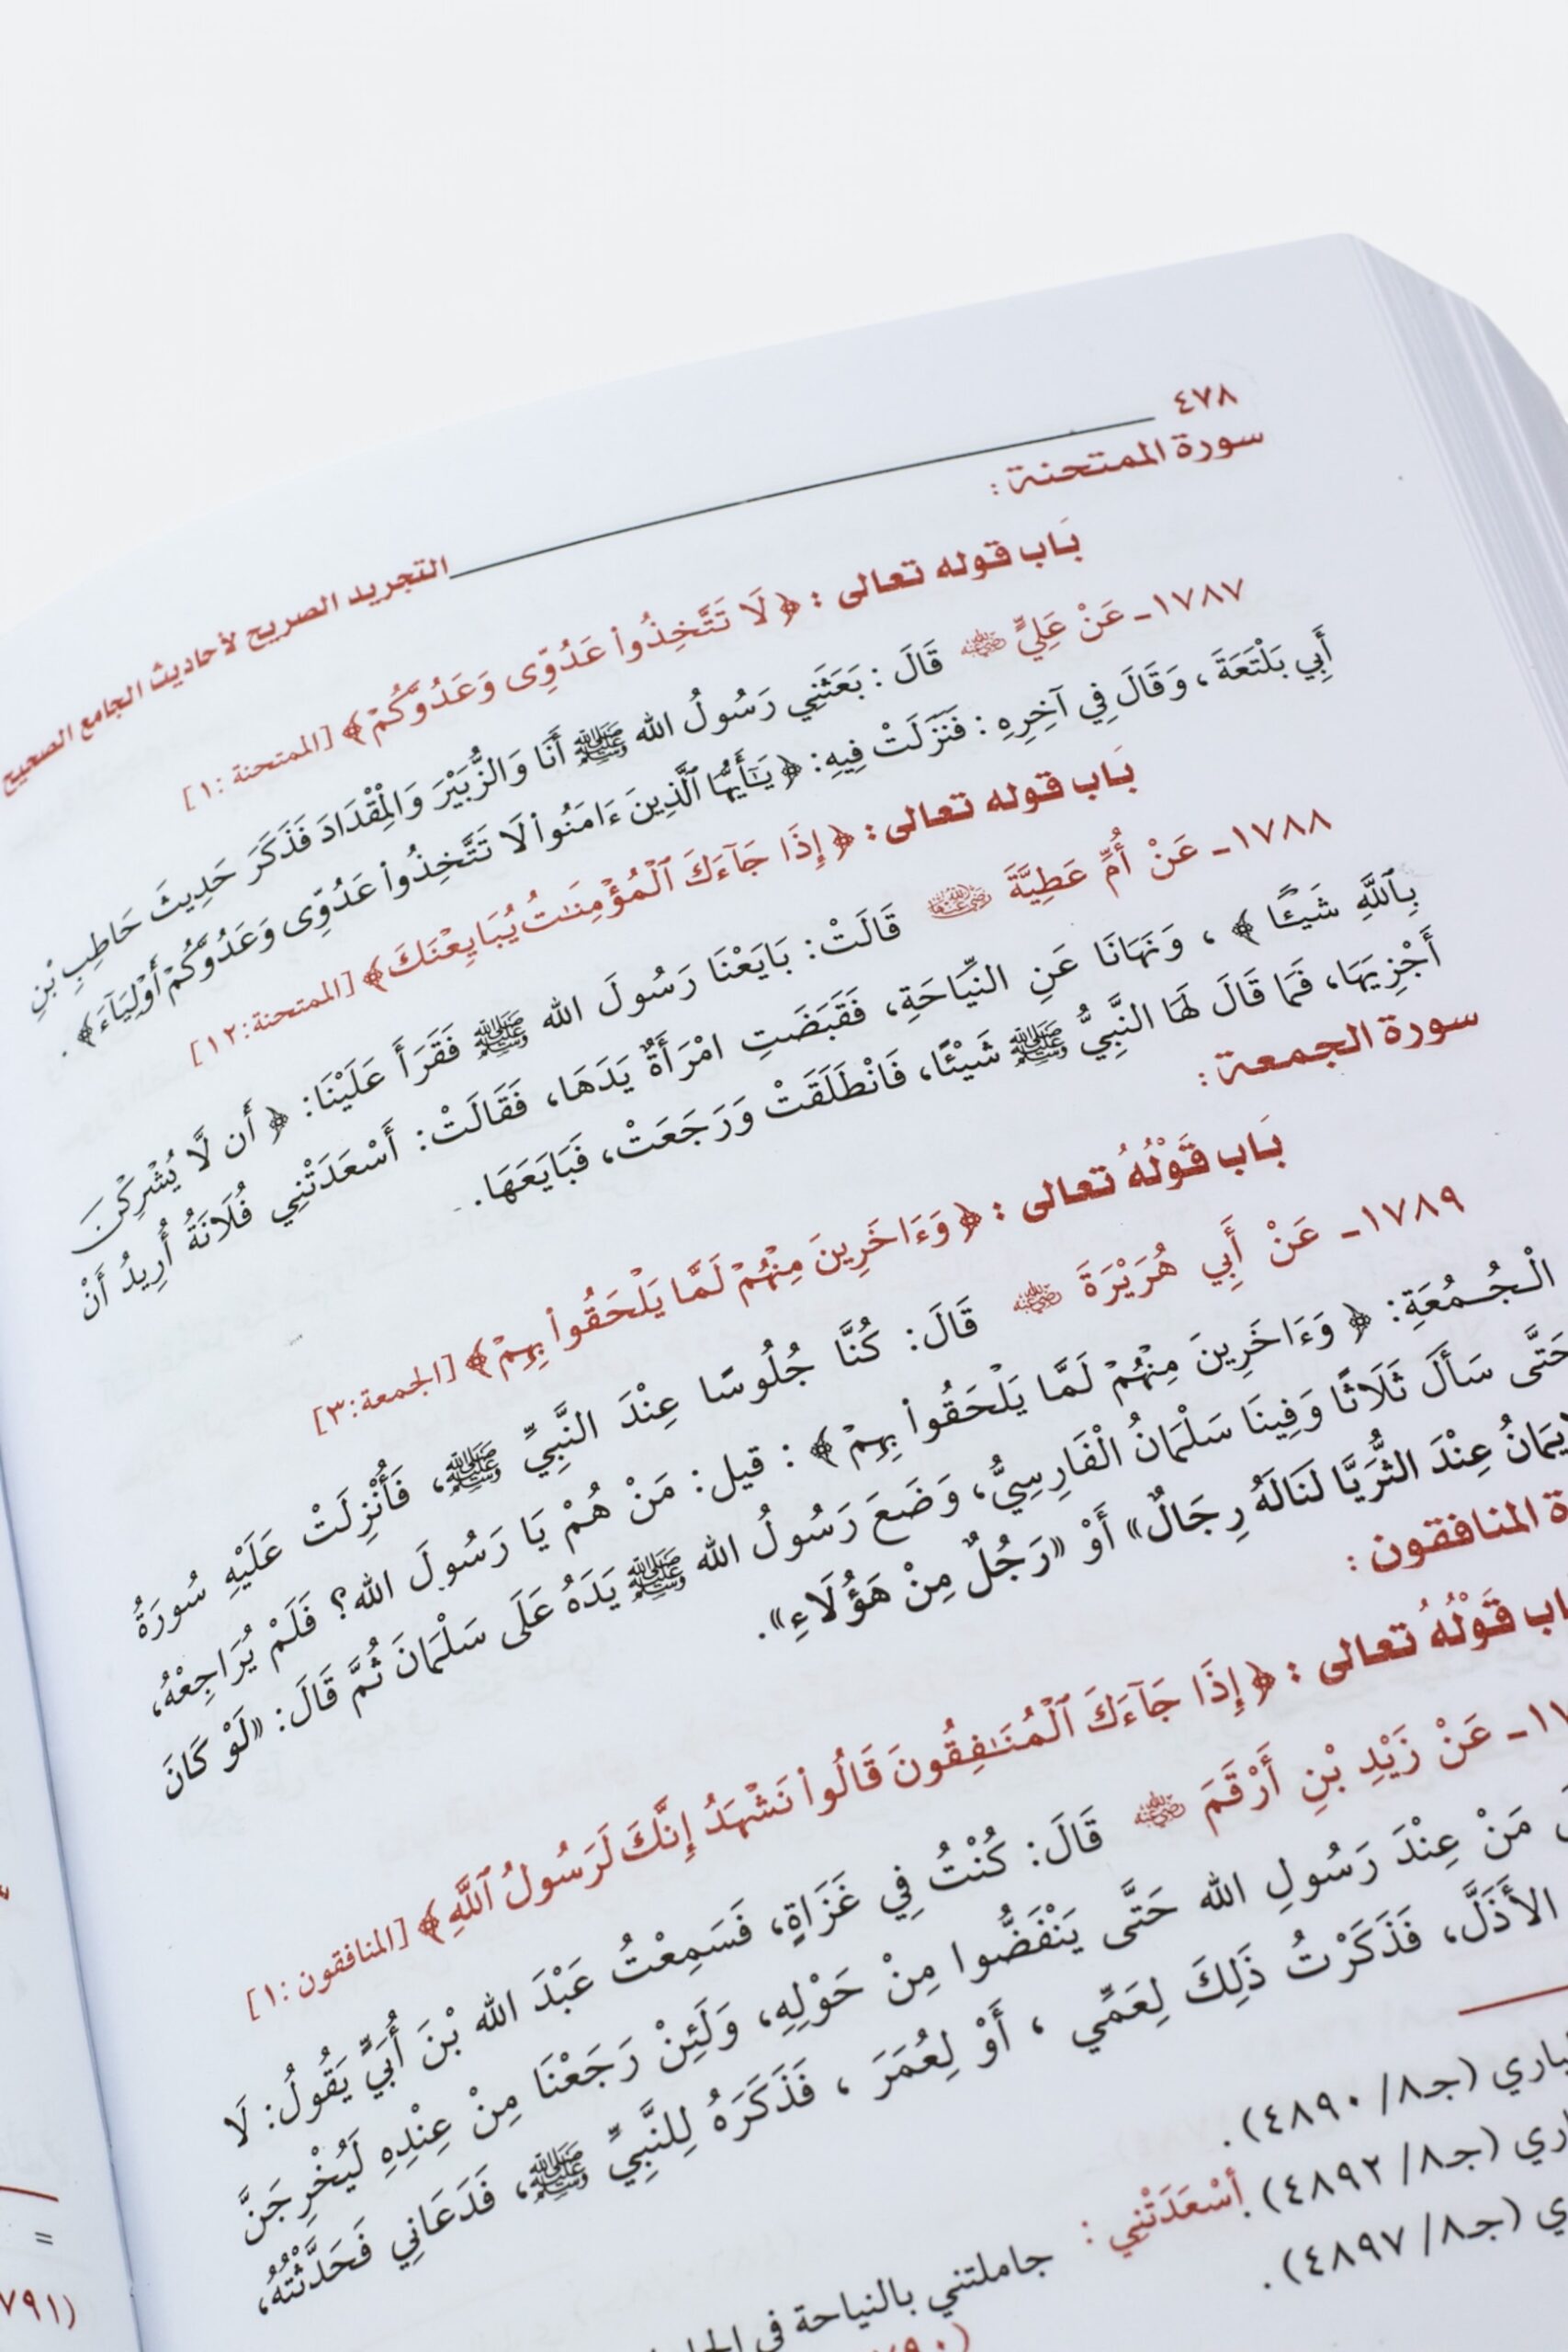 ٤٧٨
التجريد الصريح لأحاديث الجامع الصحيح
سورة الممتحنة :
بَاب قوله تعالى : ﴿ لَا تَتَّخِذُوا۟ عَدُوِّى وَعَدُوَّكُمْ ﴾ [الممتحنة :١]
١٧٨٧ـ عَنْ عَلِيٍّ ﵁ قَالَ : بَعَثَنِي رَسُولُ الله ﷺ أَنَا وَالزُّبَيْرَ وَالْمِقْدَادَ فَذَكَرَ حَدِيثَ حَاطِبِ بْنِ
أَبِي بَلْتَعَةَ ، وَقَالَ فِي آخِرِهِ : فَنَزَلَتْ فِيهِ: ﴿ يَـٰٓأَيُّهَا ٱلَّذِينَ ءَامَنُوا۟ لَا تَتَّخِذُوا۟ عَدُوِّى وَعَدُوَّكُمْ أَوْلِيَآءَ﴾ .
بَاب قوله تعالى: ﴿ إِذَا جَآءَكَ ٱلْمُؤْمِنَـٰتُ يُبَايِعْنَكَ﴾ [الممتحنة:١٢]
١٧٨٨ـ عَنْ أُمِّ عَطِيَّةَ ﵂ قَالَتْ: بَايَعْنَا رَسُولَ الله ﷺ فَقَرَأَ عَلَيْنَا: ﴿ أَن لَّا يُشْرِكْنَ
بِٱللَّهِ شَيْـًٔا ﴾ ، وَنَهَانَا عَنِ النِّيَاحَةِ، فَقَبَضَتِ امْرَأَةٌ يَدَهَا، فَقَالَتْ: أَسْعَدَتْنِي فُلَانَةُ أُرِيدُ أَنْ
أَجْزِيَهَا، فَمَا قَالَ لَهَا النَّبِيُّ ﷺ شَيْئًا، فَانْطَلَقَتْ وَرَجَعَتْ، فَبَايَعَهَا.
سورة الجمعة :
بَاب قَوْلُهُ تعالى : ﴿ وَءَاخَرِينَ مِنْهُمْ لَمَّا يَلْحَقُوا۟ بِهِمْ ﴾ [الجمعة:٣]
١٧٨٩ـ عَنْ أَبِي هُرَيْرَةَ ﵁ قَالَ: كُنَّا جُلُوسًا عِنْدَ النَّبِيِّ ﷺ، فَأُنْزِلَتْ عَلَيْهِ سُورَةُ
الْجُمُعَةِ: ﴿ وَءَاخَرِينَ مِنْهُمْ لَمَّا يَلْحَقُوا۟ بِهِمْ ﴾ : قيل: مَنْ هُمْ يَا رَسُولَ الله؟ فَلَمْ يُرَاجِعْهُ،
حَتَّى سَأَلَ ثَلَاثًا وَفِينَا سَلْمَانُ الْفَارِسِيُّ، وَضَعَ رَسُولُ الله ﷺ يَدَهُ عَلَى سَلْمَانَ ثُمَّ قَالَ: «لَوْ كَانَ
عِنْدَ الثُّرَيَّا لَنَالَهُ رِجَالٌ» أَوْ «رَجُلٌ مِنْ هَؤُلَاءِ».
المنافقون :
قَوْلُهُ تعالى : ﴿ إِذَا جَآءَكَ ٱلْمُنَـٰفِقُونَ قَالُوا۟ نَشْهَدُ إِنَّكَ لَرَسُولُ ٱللَّهِ ﴾ [المنافقون :١]
عَنْ زَيْدِ بْنِ أَرْقَمَ ﵁ قَالَ: كُنْتُ فِي غَزَاةٍ، فَسَمِعْتُ عَبْدَ الله بْنَ أُبَيٍّ يَقُولُ: لَا
مَنْ عِنْدَ رَسُولِ الله حَتَّى يَنْفَضُّوا مِنْ حَوْلِهِ، وَلَئِنْ رَجَعْنَا مِنْ عِنْدِهِ لَيُخْرِجَنَّ
الأَذَلَّ، فَذَكَرْتُ ذَلِكَ لِعَمِّي ، أَوْ لِعُمَرَ ، فَذَكَرَهُ لِلنَّبِيِّ ﷺ، فَدَعَانِي فَحَدَّثْتُهُ،
(جـ٨/ ٤٨٩٠).
(جـ٨/ ٤٨٩٢). أَسْعَدَتْنِي : جاملتني بالنياحة في
(جـ٨/ ٤٨٩٧).